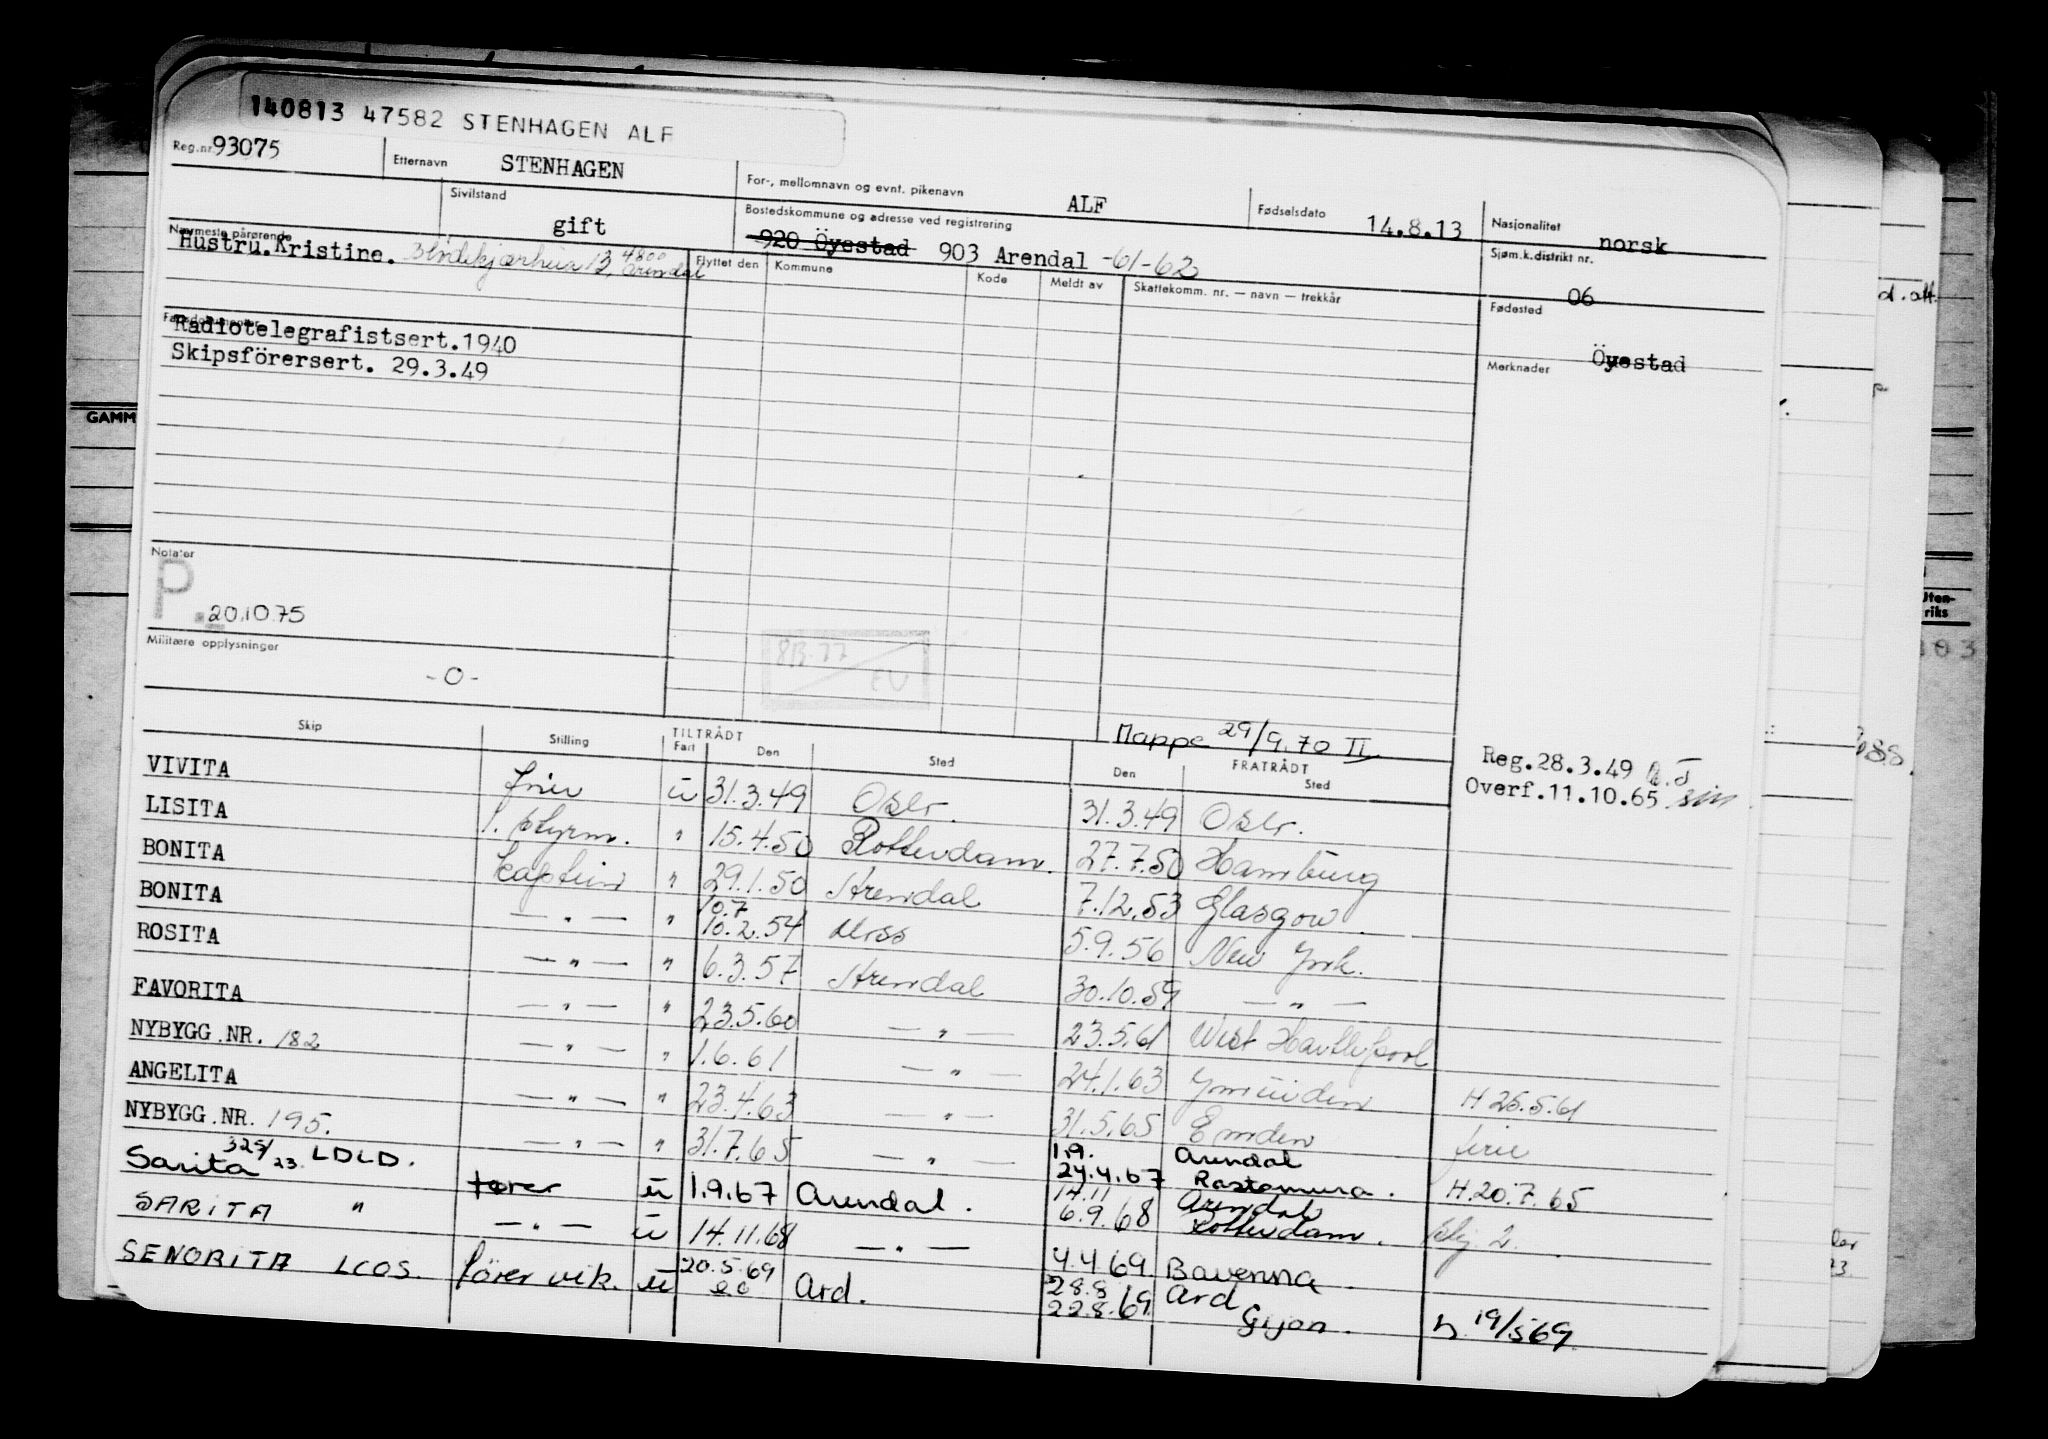 140813 47582 STENHAGEN ALF
Reg.nr. 93075
Etternavn STENHAGEN
For-, mellomnavn og evnt. pikenavn ALF
Fødselsdato 14.8.13
Nasjonalitet norsk
Sivilstand gift
Bostedskommune og adresse ved registrering
920 Öyestad 903 Arendal -61-62
Sjøm.k.distrikt nr. 06
Nærmeste pårørende
Hustru.Kristine. 4800 Arendal
Flyttet den Kommune Kode Meldt av Skattekomm. nr. — navn — trekkår
Fødested Öyestad
Radiotelegrafistsert.1940
Skipsförersert. 29.3.49
Merknader
Notater
P. 20.10.75
Militære opplysninger
-0-
Mappe 29/9.70 II
Reg.28.3.49
Overf.11.10.65
Skip Stilling TILTRÅDT Fart Den Sted FRATRÅDT Den Sted
VIVITA ü 31.3.49 Oslo 31.3.49 Oslo.
LISITA 1. styrm. " 15.4.50 Rotterdam. 27.7.50 Hamburg
BONITA kaptein " 29.1.50 Arendal 7.12.53 Glasgow.
BONITA — " — " 10.7 10.2.54 Moss 5.9.56 New York.
ROSITA — " — " 6.3.57 Arendal 30.10.59 — " —
FAVORITA — " — " 23.5.60 — " — 23.5.61 West Hartlepool
NYBYGG.NR. 182 — " — " 1.6.61 — " — 24.1.63 Ymuiden H 25.5.61
ANGELITA — " — " 23.4.63 — " — 31.5.65 Emden ferie
NYBYGG.NR. 195. — " — " 31.7.65 — " — 1.9. 24.4.67 Arendal H.20.7.65
Sarita 325/23. LDLD. fører ü 1.9.67 Arendal. 14.11 6.9.68 Arendal Rotterdam.
SARITA " — " — ü 14.11.68 — " — 4.4.69.
SENORITA LCOS. förer vik. ü 20.5.69 Ard. 28.8 22.8.69 Ard Gijon. h 19/569.
GAMM
Uten-
riks
103